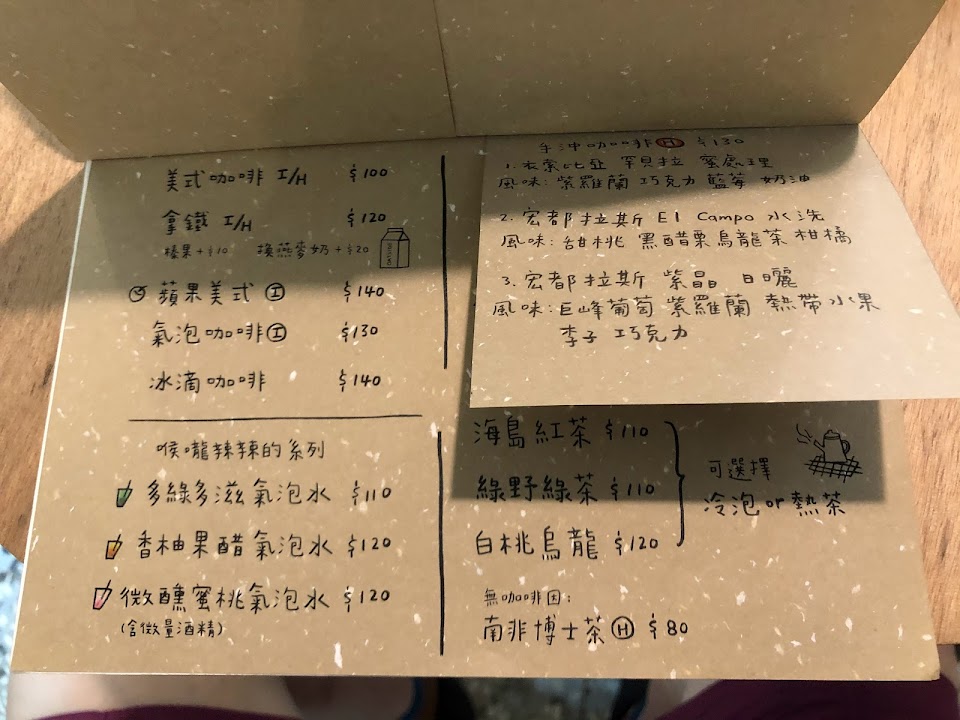 美式咖啡 I/H $100
拿鐵 I/H $120
榛果+$10 換燕麥奶+$20
蘋果美式 I $140
氣泡咖啡 I $130
冰滴咖啡 $140
喉嚨辣辣的系列
多綠多滋氣泡水 $110
香柚果醋氣泡水 $120
微醺蜜桃氣泡水 $120
(含微量酒精)
手沖咖啡 H $130
1. 衣索比亞 罕貝拉 蜜處理
風味: 紫羅蘭 巧克力 藍莓 奶油
2. 宏都拉斯 El Campo 水洗
風味: 甜桃 黑醋栗 烏龍茶 柑橘
3. 宏都拉斯 紫晶 日曬
風味: 巨峰葡萄 紫羅蘭 熱帶水果
李子 巧克力
海島紅茶 $110
綠野綠茶 $110
白桃烏龍 $120
可選擇
冷泡 or 熱茶
無咖啡因:
南非博士茶 H $80